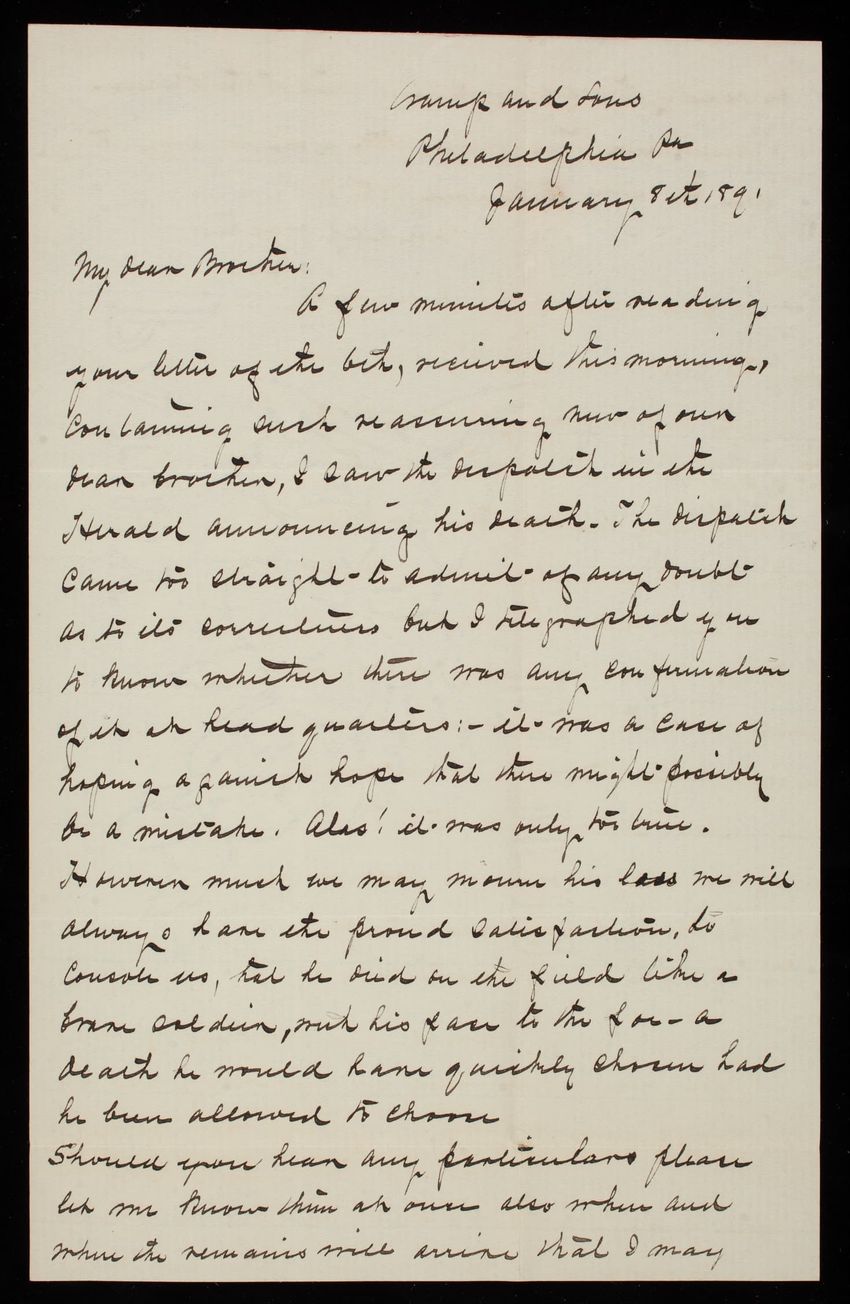 Cramp and Sons
Philadelphia Pa
January 8th 1891
My dear Brother:
A few minutes after reading
your letter of the 6th, recieved this morning,
containing such reassuring news of our
dear brother, I saw the dispatch in the
Herald announcing his death. The dispatch
came too straight to admit of any doubt
as to its correctness but I telegraphed you
to know whether there was any confirmation
of it at head quarters:- it was a case of
hoping against hope that there might possibly
be a mistake. Alas! it was only too true.
However much we may mourn his loss we will
always have the proud satisfaction, to
console us, that he died on the field like a
brave soldier, with his face to the foe - a
death he would have quickly chosen had
he been allowed to choose
Should you hear any particulars please
let me know them at once also when and
where the remains will arrive that I may